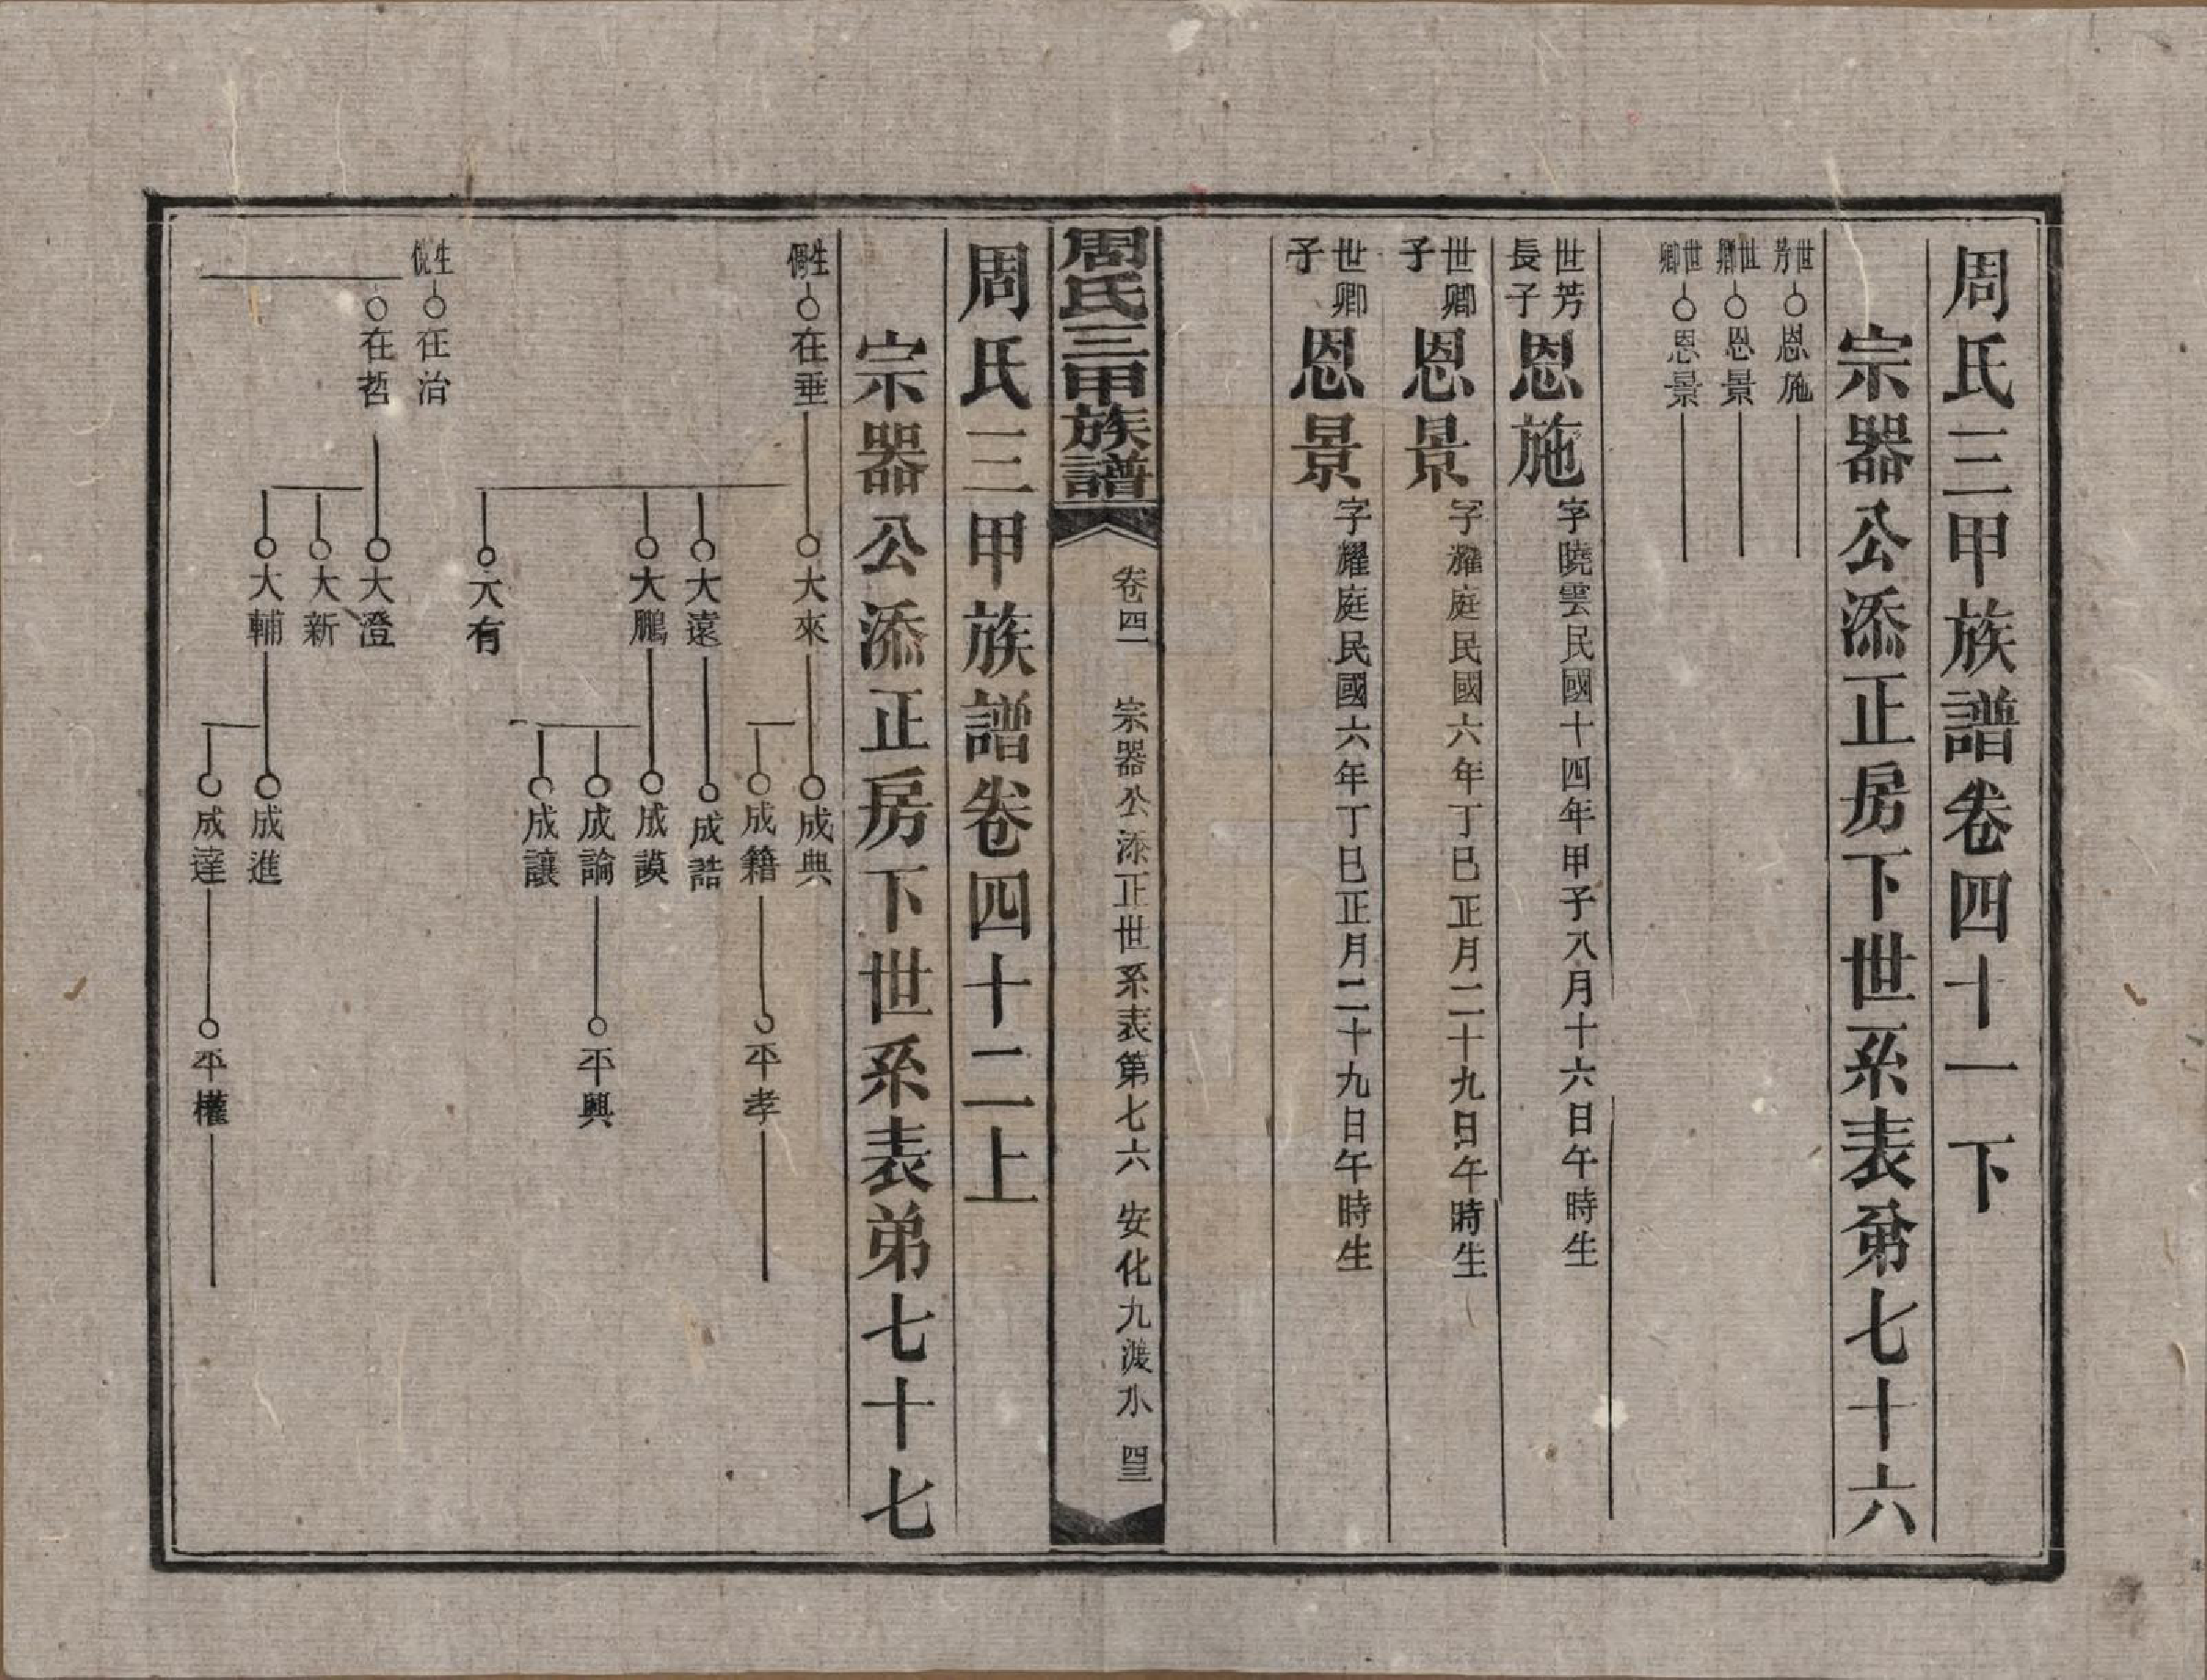 周氏三甲族譜卷四十一下
宗器公添正房下世系表弟七十六
世芳 恩施
世卿 恩景
世卿 恩景
世芳長子 恩施 字曉雲民國十四年甲子八月十六日午時生
世卿子 恩景 字耀庭民國六年丁巳正月二十九日午時生
世卿子 恩景 字耀庭民國六年丁巳正月二十九日午時生
周氏三甲族譜 卷四一 宗器公添正世系表第七六 安化九渡水
周氏三甲族譜卷四十二上
宗器公添正房下世系表弟七十七
生 在垂 大來 成典
成籍 平孝
大遠 成誥
大鵬 成謨
成論 平興
成讓
大有
生 在治
在哲 大澄
大新
大輔 成進
成達 平權